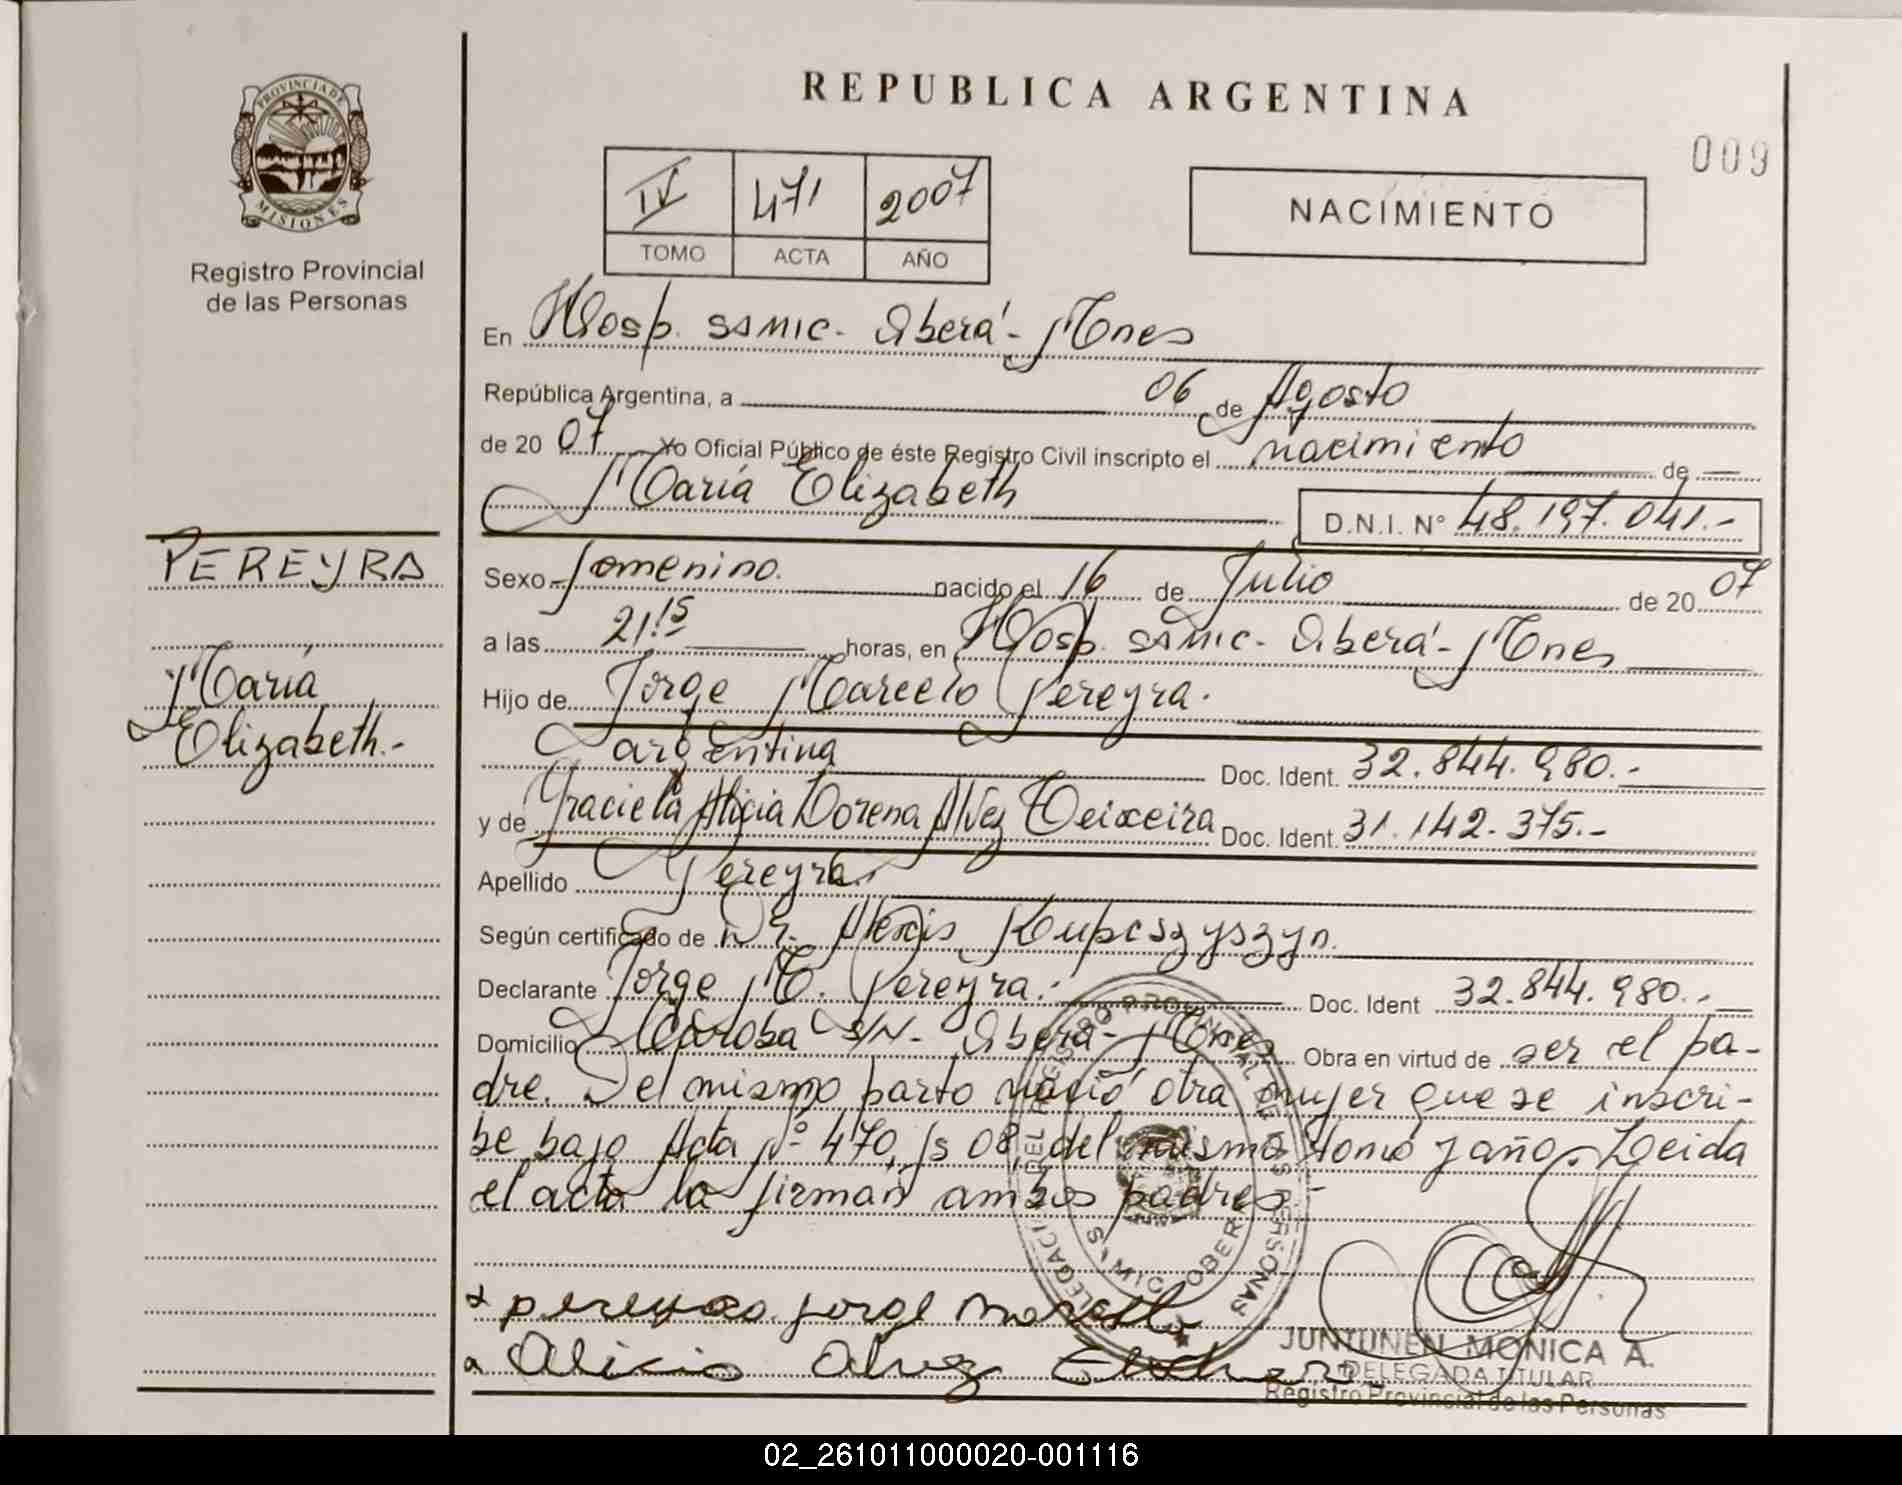 PROVINCIA DE
MISIONES
Registro Provincial
de las Personas
REPUBLICA ARGENTINA
009
IV 471 2007
TOMO ACTA AÑO
NACIMIENTO
En Hosp. SAMIC. Oberá - Mnes
República Argentina, a 06 de Agosto
de 20 07 Yo Oficial Público de éste Registro Civil inscripto el nacimiento de
María Elizabeth
D.N.I. N° 48.197.041.-
PEREYRA
María
Elizabeth.-
Sexo femenino. nacido el 16 de Julio de 20 07
a las 21:15 horas, en Hosp. SAMIC. Oberá - Mnes
Hijo de Jorge Marcelo Pereyra.
argentina Doc. Ident. 32.844.980.-
y de Graciela Alicia Lorena Alvez Teixeira Doc. Ident. 31.142.375.-
Apellido Pereyra.
Según certificado de Dr. Alexis Kupcszyszyn.
Declarante Jorge M. Pereyra. Doc. Ident 32.844.980.-
Domicilio Córdoba S/N - Oberá - Mnes Obra en virtud de ser el pa-
dre. Del mismo parto nació otra mujer que se inscri-
be bajo Acta Nº 470, fs 08, del mismo tomo y año. Leida
el acta la firman ambos padres -
DELEGACI DEL REGISTRO PROVINCIAL DE LAS PERSONAS
SAMIC OBERA
pereyra jorge marcelo
Alicia Alvez
JUNTUNEN MONICA A.
DELEGADA TITULAR
Registro Provincial de las Personas
02_261011000020-001116